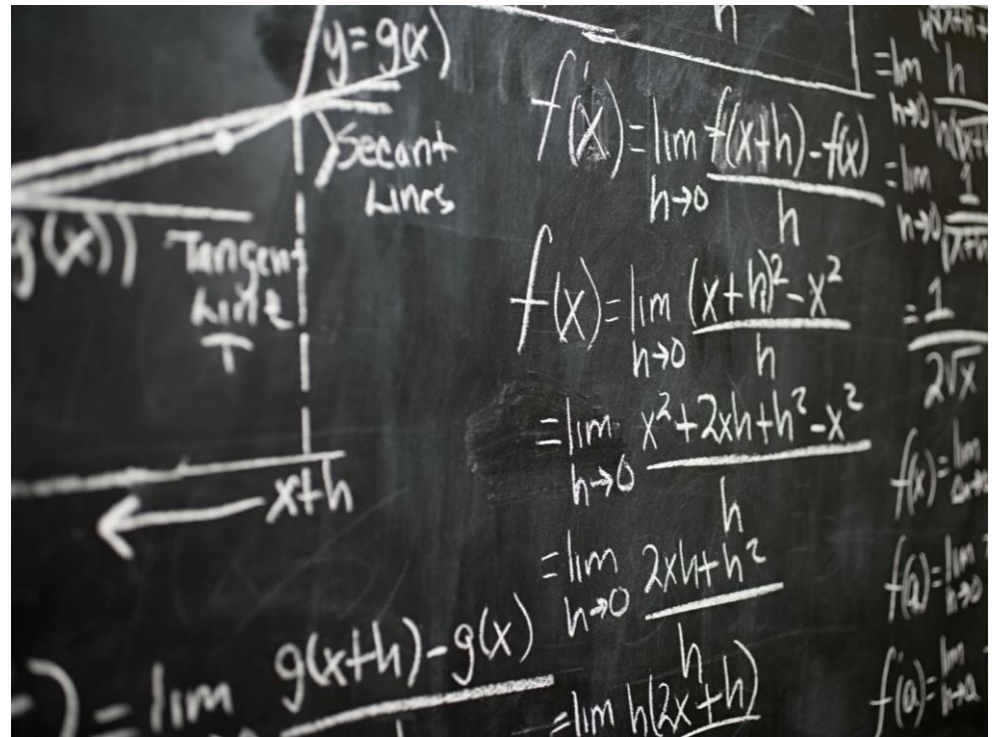 y = g(x)
Secant
Lines
g(x))
Tangent
Line
T
x+h
= lim g(x+h) - g(x)
h
f'(x) = lim f(x+h) - f(x)
h→0 h
f(x) = lim (x+h)² - x²
h→0 h
= lim x² + 2xh + h² - x²
h→0 h
= lim 2xh + h²
h→0 h
= lim h(2x + h)
= lim
h→0 h
= lim 1
h→0
= 1
2√x
f(x) = lim
f(a) = lim
h→0
f'(a) = lim
h→a